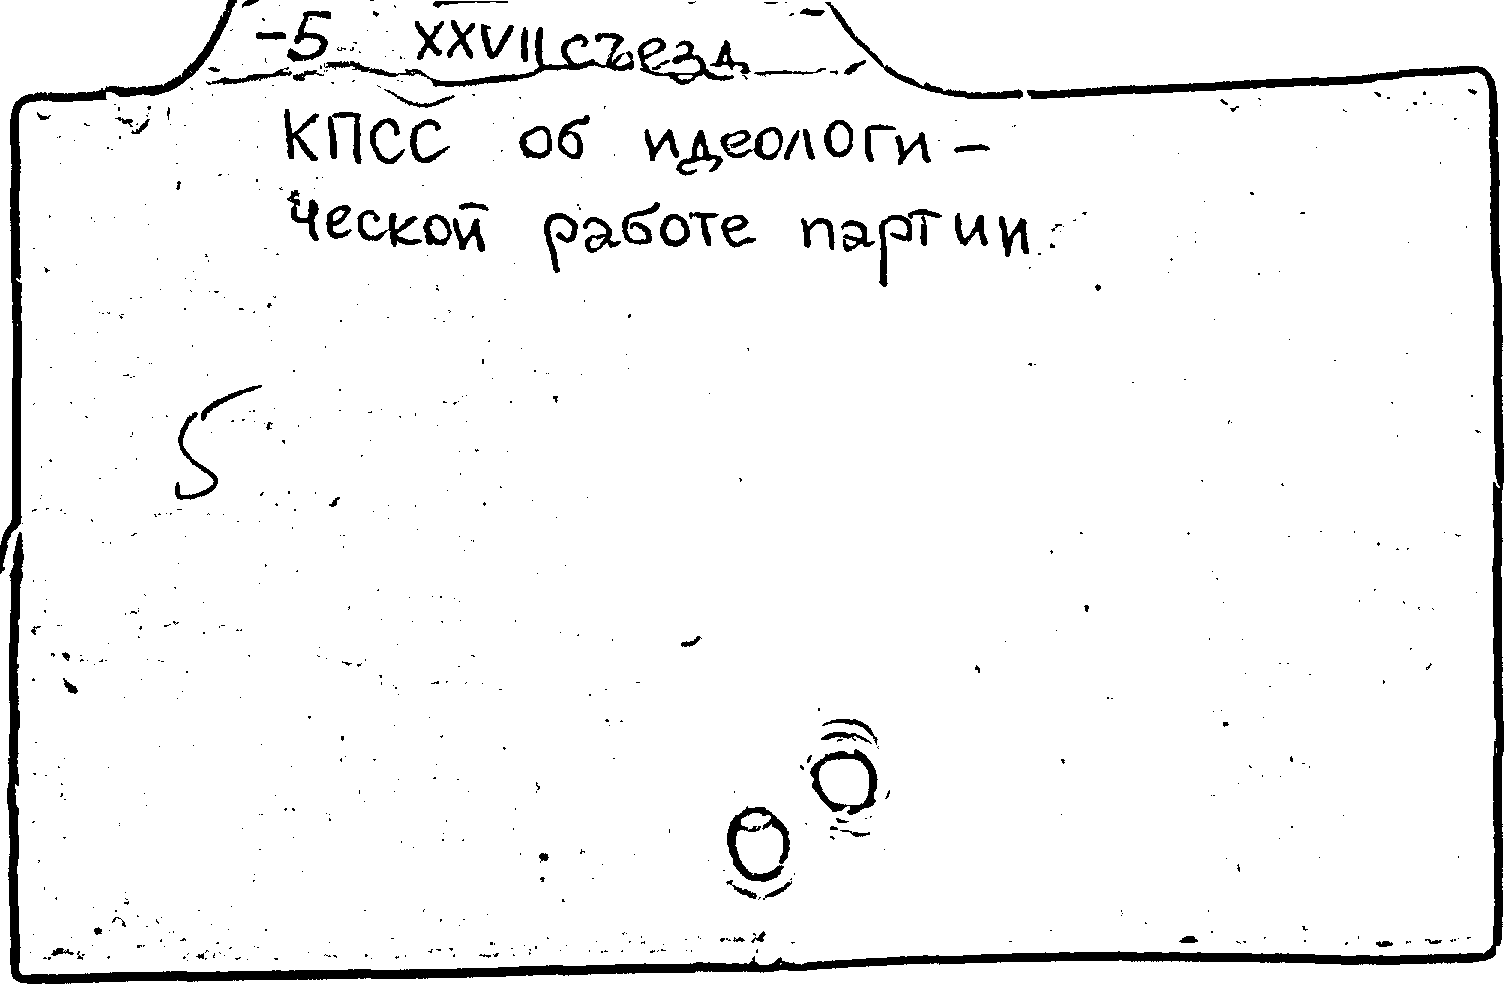 -5 XXVII съезд
КПСС об идеологи-
ческой работе партии
5